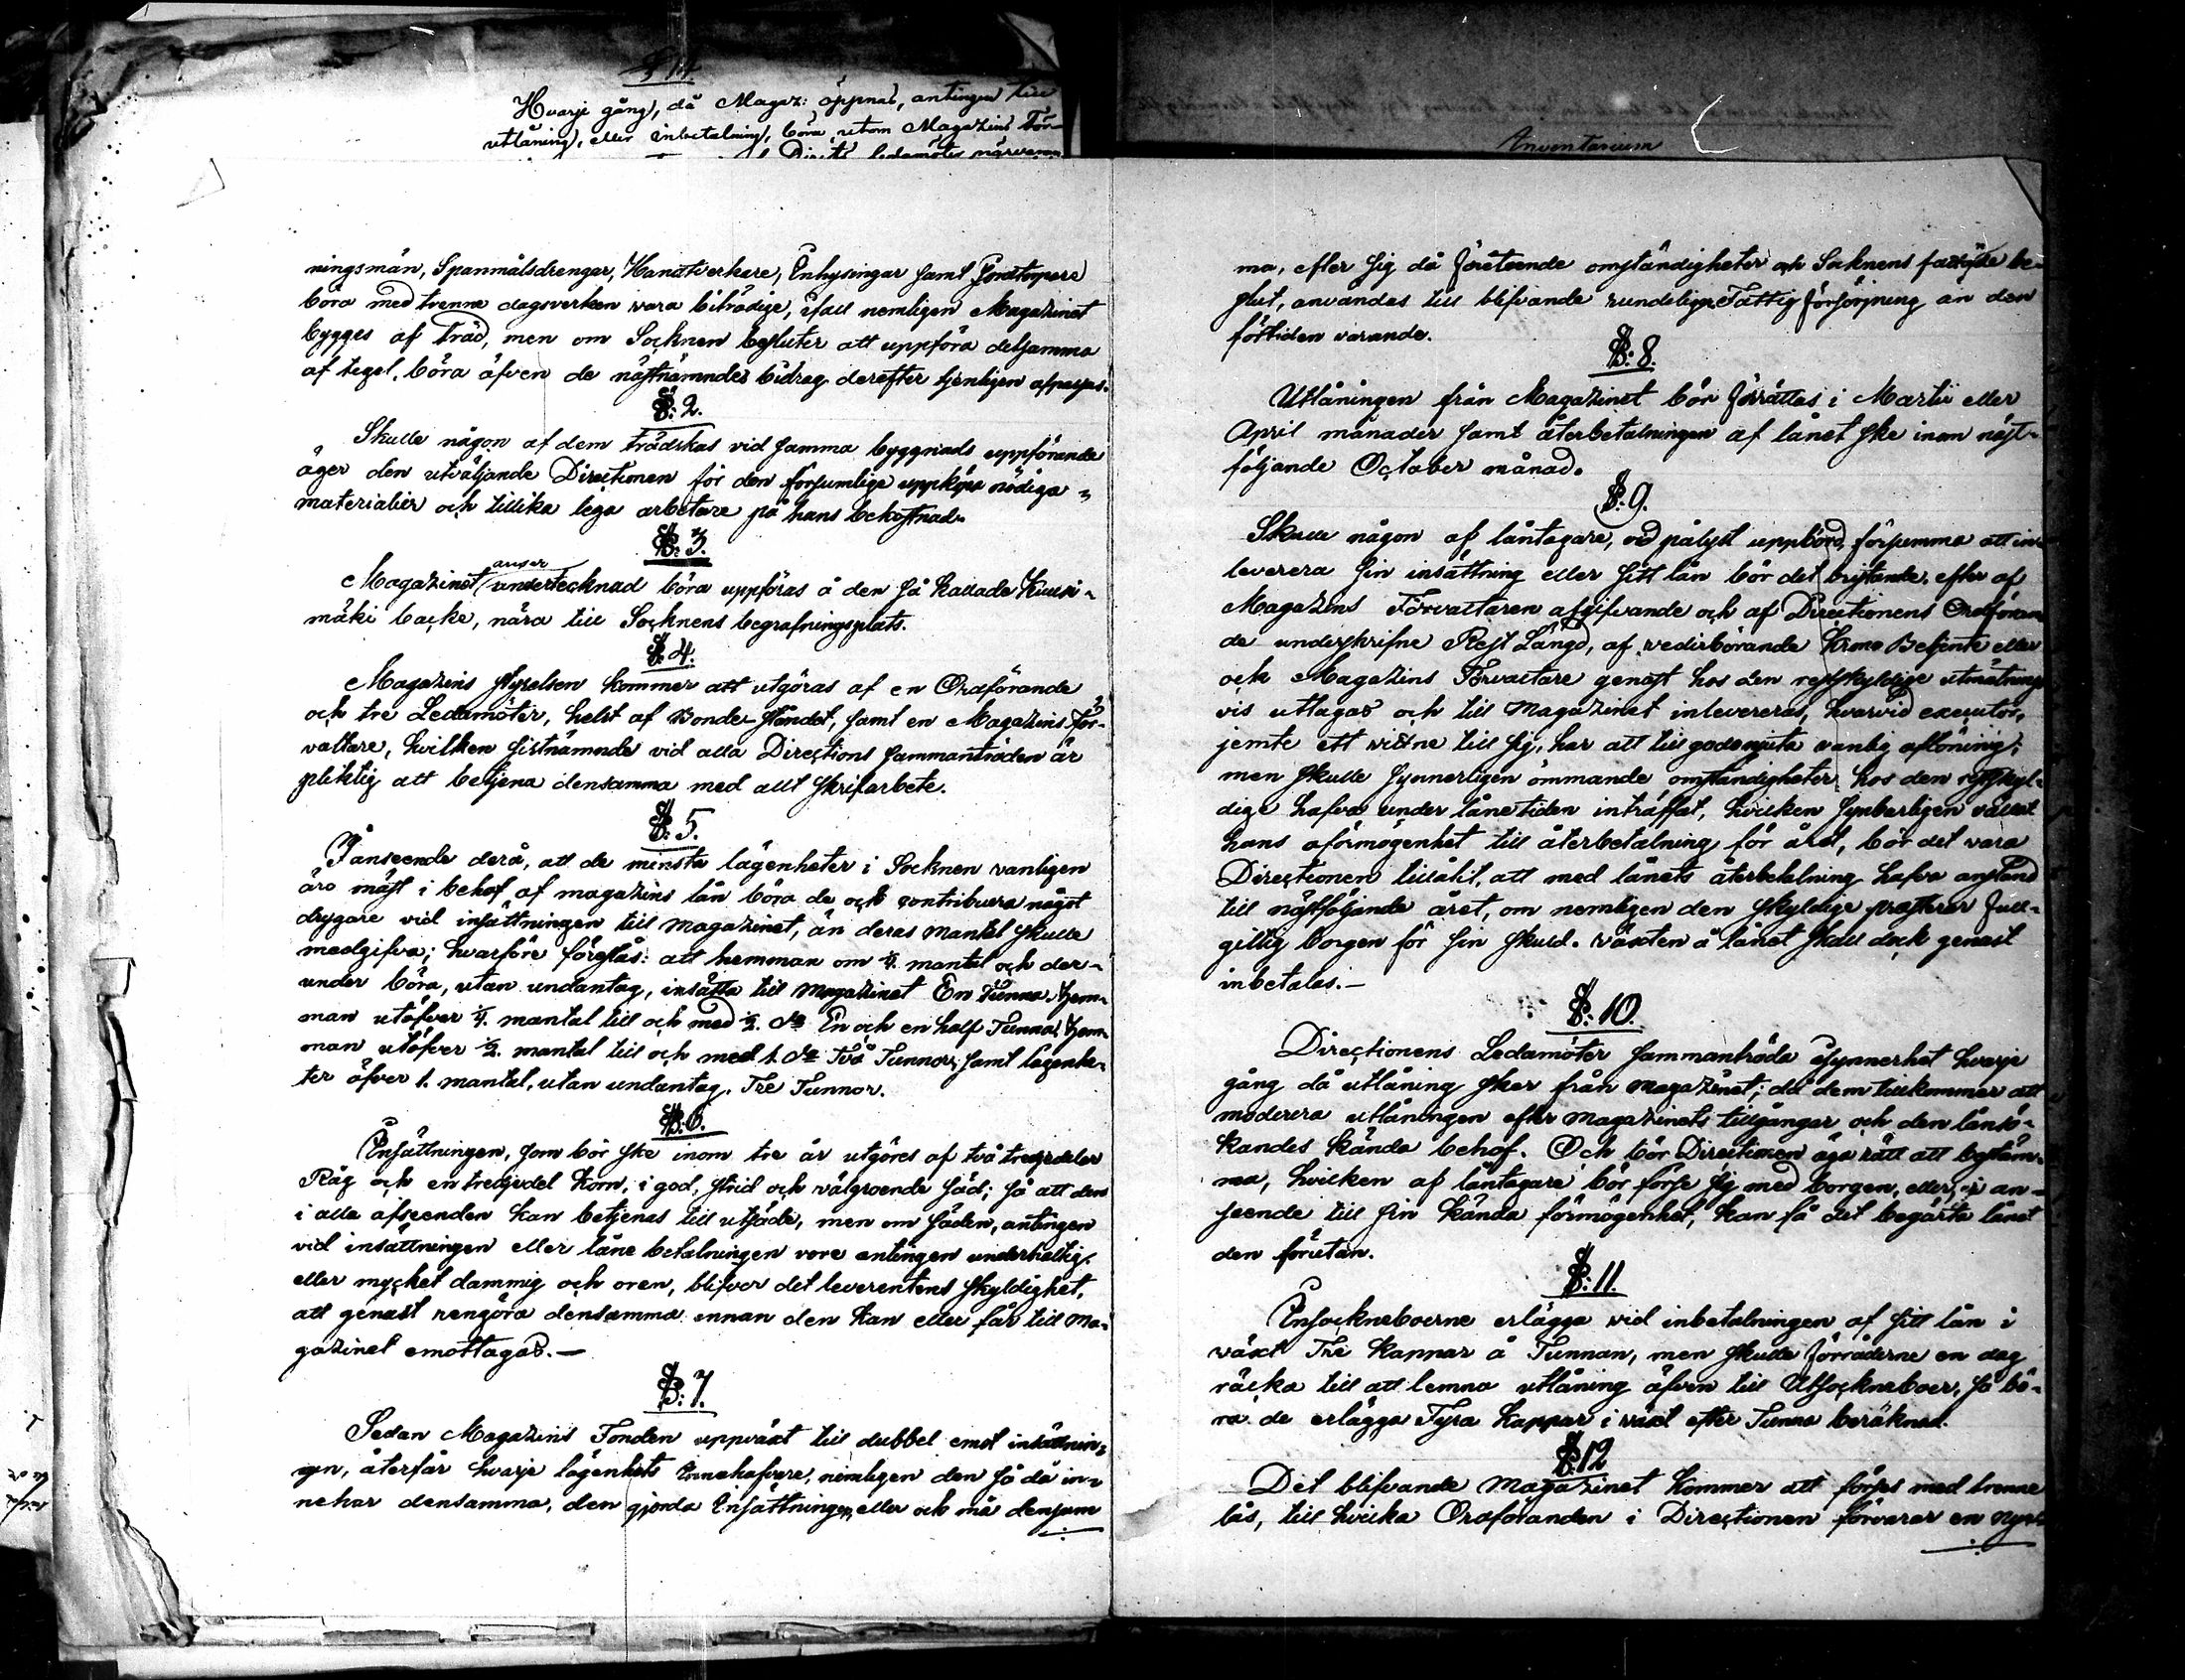 § 14.
Hvarje gång, då Magaz: öppnas, antingen till
utlåning, eller inbetalning, böra utom Magazins För-
ledamöter närvara
Inventarium
ningsmän, Spanmålsdrengar, Handtverkare, Inhysingar samt
böra med trenne dagsverken vara biträdige, ifall nemligen Magazinet
bygges af Träd, men om Socknen besluter att uppföra detsamma
af tegel, böra äfven de nästnämndes bidrag derefter tjenligen afpassas.
§: 2.
Skulle någon af dem tredskas vid samma byggnads uppförande
äger den utväljande Directionen för den försumlige uppköpa nödiga
materialier och tillika lega arbetare på hans bekostnad.
§: 3.
anser
Magazinet undertecknad böra uppföras å den så kallade
mäki backe, nära till Socknens begrafningsplats.
§: 4.
Magazins styrelsen kommer att utgöras af en Ordförande
och tre Ledamöter, helst af Bonde-ståndet, samt en Magazins för-
valtare, hvilken sistnämnde vid alla Directions sammanträden är
pliktig att betjena densamma med allt skrifarbete.
§: 5.
I anseende derå, att de minsta lägenheter i Socknen vanligen
äro mäst i behof af magazins lån böra de och contribuera något
drygare vid insättningen till magazinet, än deras mantal skulle
medgifva; hvarföre föreslås: att hemman om 1/4. mantal och der-
under böra, utan undantag, insätta till magazinet En Tunna, hem-
man utöfver 1/4. mantal till och med 1/2. do En och en half Tunna, hem-
man utöfver 1/2. mantal till och med 1. do Två Tunnor, samt lägenhe-
ter öfver 1. mantal, utan undantag, Tre Tunnor.
§: 6.
Insättningen, som bör ske inom tre år utgöres af två tredjedelar
Råg och en tredjedel Korn, i god, strid och välgroende säd; så att den
i alla afseenden kan betjenas till utsäde, men om säden, antingen
vid insättningen eller låne betalningen vore antingen underhaltig
eller mycket dammig och oren, blifver det leverentens skyldighet,
att genast rengöra densamma innan den kan eller får till Ma-
gazinet emottagas.—
§: 7.
Sedan Magazins Fonden uppväxt till dubbel emot insättnin-
gen, återfår hvarje lägenhets Innehafvare, nemligen den så då in-
nehar densamma, den gjorda Insättningen, eller och må densam
ma, efter sig då företeende omständigheter och Socknens be-
slut, användas till blifvande rundeligare Fattig försörjning än den
förtiden varande.
§: 8.
Utlåningen från Magazinet bör förrättas i Martii eller
April månader samt återbetalningen af lånet ske inom näst-
följande October månad.
§: 9.
Skulle någon af låntagare, vid pålyst uppbörd, försumma att in-
leverera sin insättning eller sitt lån bör det bristande, efter af
Magazins Förvaltaren afgifvande och af Directionens Ordföran
de underskrifne Rest Längd, af vederbörande Krono Betjente eller
och Magazins Förvaltare genast hos den restskyldige utmätnings
vis uttagas och till Magazinet inlevereras, hvarvid executor,
jemte ett vittne till sig, har att tillgodonjuta vanlig aflöning;
men skulle synnerligen ömmande omständigheter hos den restskyl-
dige hafva under lånetiden inträffat, hvilken synbarligen vållat
hans oförmögenhet till återbetalning för året, bör det vara
Directionen tillåtit, att med lånets återbetalning hafva anstånd
till nästföljande året, om nemligen den skyldige presterar full-
giltig borgen för sin skuld. Växten å lånet skall dock genast
inbetalas.—
§: 10.
Directionens Ledamöter sammanträda i synnerhet hvarje
gång då utlåning sker från magazinet; det dem tillkommer att
moderera utlåningen efter magazinets tillgångar och den lånsö-
kandes kända behof. Och bör Directionen äga rätt att bestäm-
ma, hvilken af låntagare bör förse sig med borgen, eller, i an-
seende till sin kända förmögenhet, kan få det begärta lånet
den förutan.
§: 11.
Insockneboerne erlägga vid inbetalningen af sitt lån i
växt Tre kappar å Tunnan, men skulle förråderne en dag
räcka till att lemna utlåning äfven till Utsockneboer, så bö-
ra de erlägga Fyra kappar i växt efter Tunna beräknad.
§: 12
Det blifvande Magazinet kommer att förses med trenne
lås, till hvilka Ordföranden i Directionen förvarar en